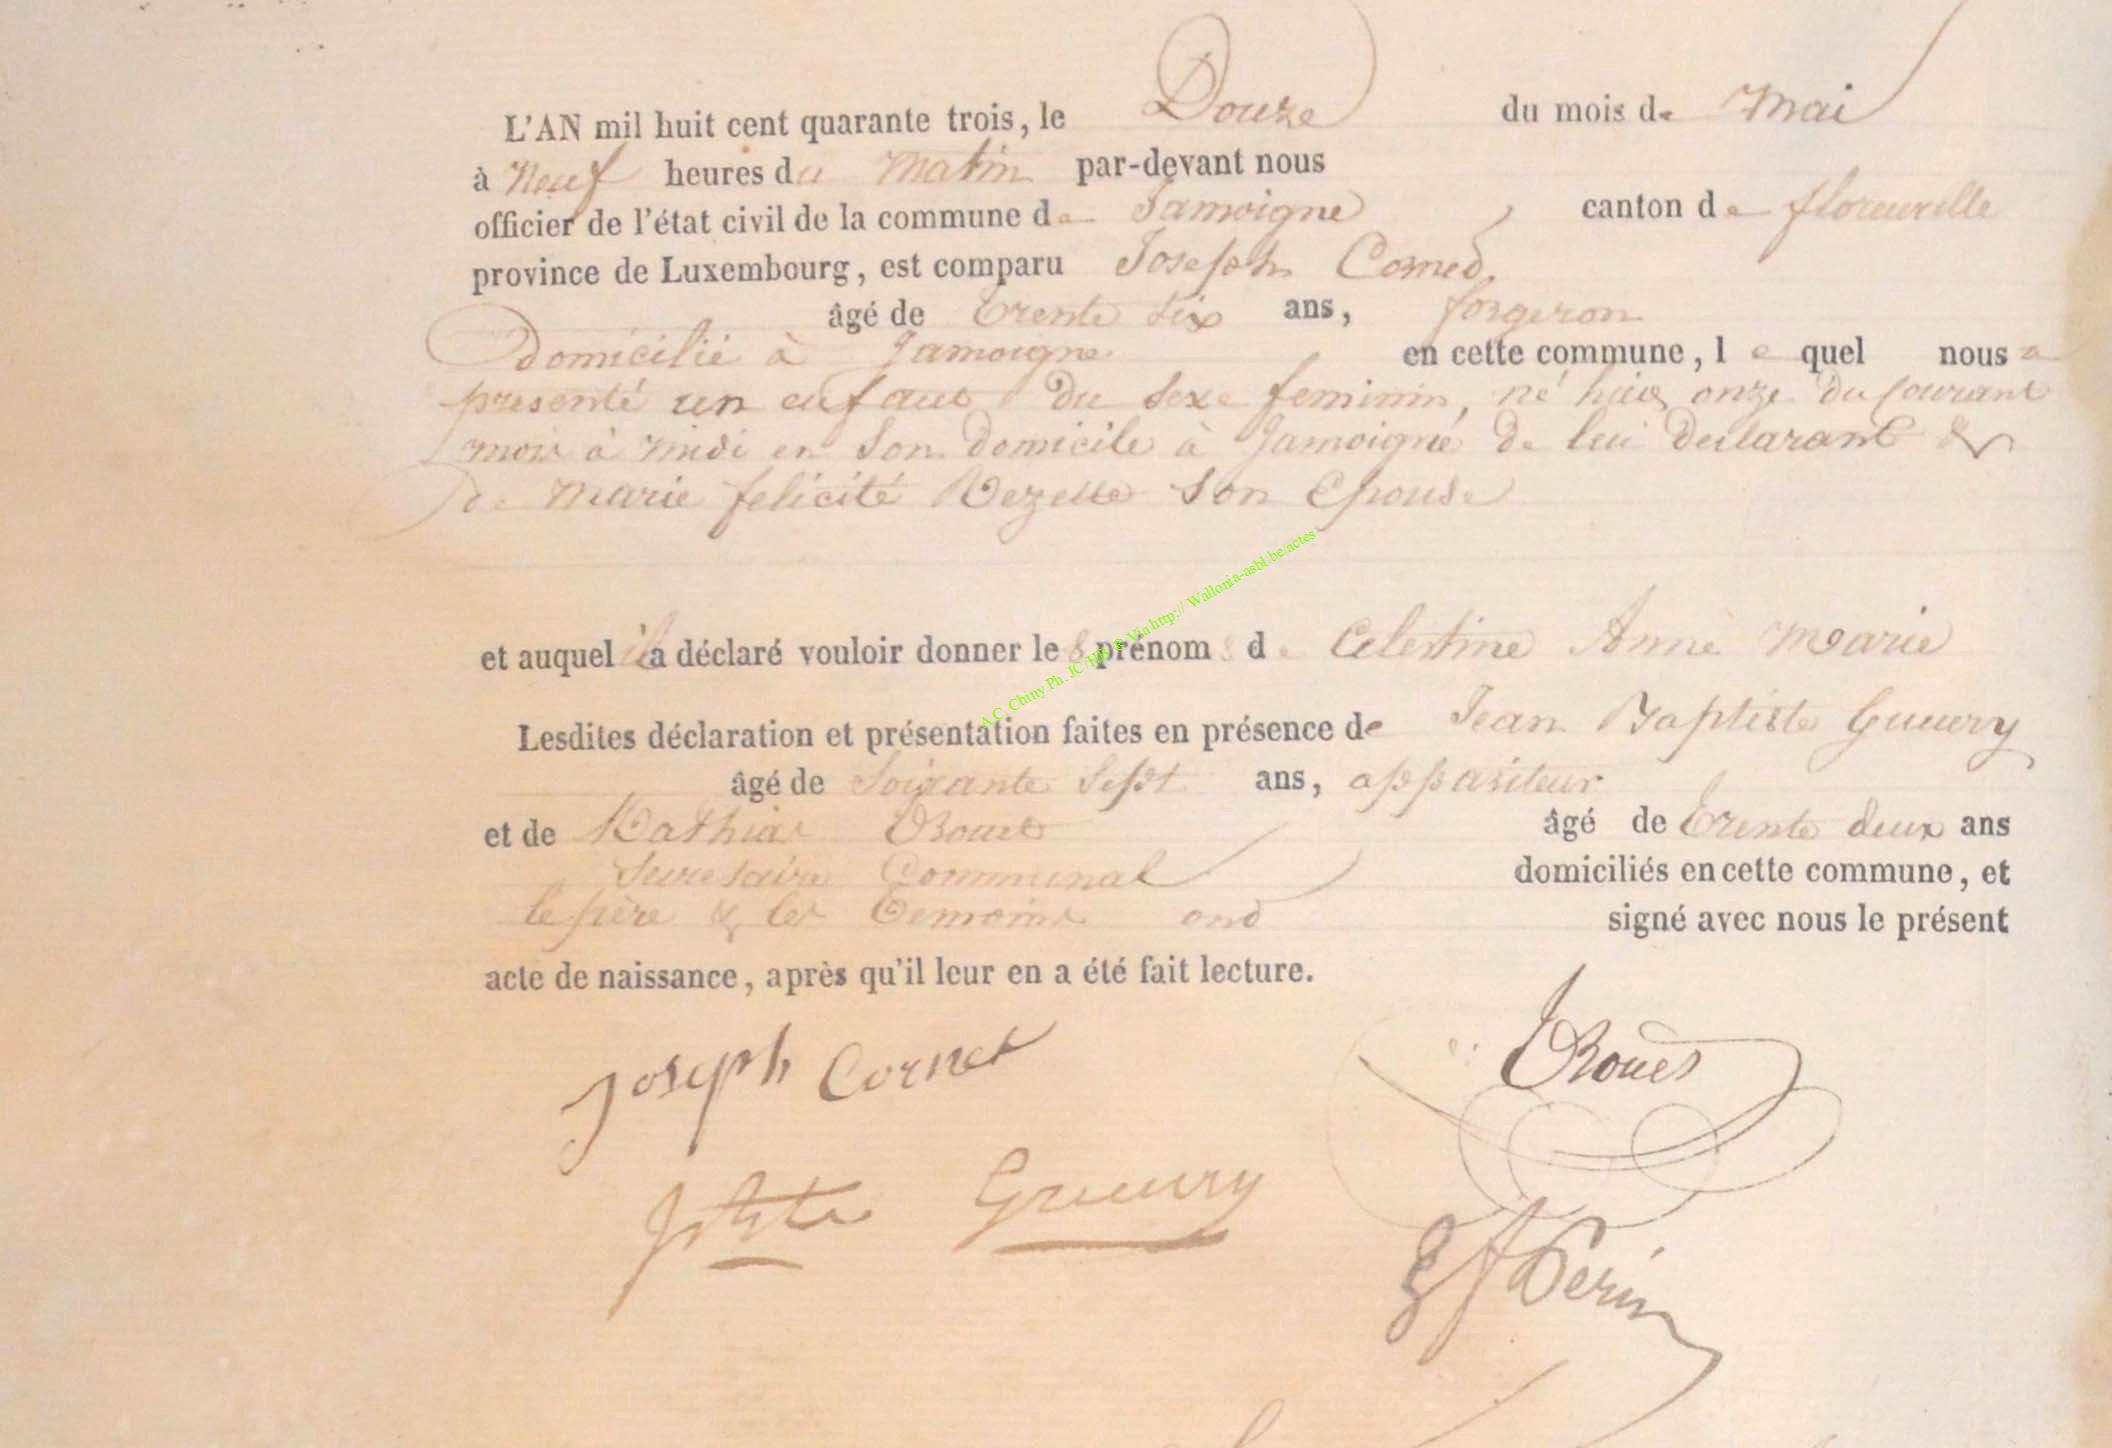 L'AN mil huit cent quarante trois, le Douze du mois de Mai
à Neuf heures du Matin par-devant nous
officier de l'état civil de la commune de Jamoigne canton de florenville
province de Luxembourg, est comparu Joseph Cornet
âgé de trente six ans, forgeron
Domicilié à Jamoigne en cette commune, le quel nous a
presenté un enfant du sexe feminin, né hier onze du courant
mois à midi en son domicile à Jamoigne de lui declarant &
de Marie felicité son Epouse
et auquel il a déclaré vouloir donner les prénoms de Celestine Anne Marie
Lesdites déclaration et présentation faites en présence de Jean Baptiste Gueury
âgé de Soixante Sept ans, appariteur
et de Mathias Rouet âgé de trente deux ans
Secretaire Communal domiciliés en cette commune, et
le père & les temoins ont signé avec nous le présent
acte de naissance, après qu'il leur en a été fait lecture.
Joseph Cornet
Rouet
Gueury
Perin
A.C. Chiny Ph. JC Via http:// Wallonia-asbl.be/actes